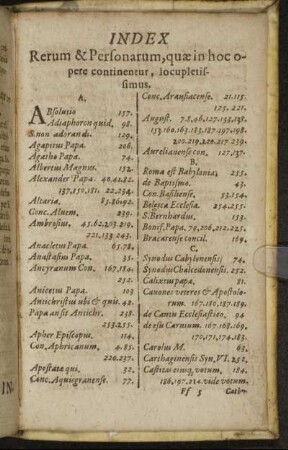 INDEX
Rerum & Personarum, quæ in hoc o-
pere continentur, locupletis-
simus.
A.
ABsolutio 157.
Adiaphoron quid, 98.
S. non adorandi. 109.
Agapitus Papa. 206.
Agatho Papa. 74.
Albertus Magnus. 152.
Alexander Papa. 40.41.82.
137.150.181. 22.254.
Altaria, 83.86.92.
Conc. Aluem. 239.
Ambrosius, 45.62.203.219.
221.133.243.
Anacletus Papa. 65.78.
Anastasius Papa. 35.
Ancyranum Con. 167.184.
232.
Anicetus Papa. 103
Antichristus ubi & quis. 42.
Papa an sit Antichr. 238.
253.255.
Apher Episcopus. 114.
Con. Aphricanum. 4.85.
226.237.
Apostatæ qui. 32.
Conc. Aquisgranense. 77.
Conc. Arausiacense. 21.115.
125.221.
August. 7.8.46.127.135.138.
153.160.163.183.187.197.198.
200.219.229.217.239.
Aurelianense con. 127.137.
B.
Roma est Babylonia, 255.
de Baptismo. 43.
Con. Basiliense. 53.154.
Belgica Ecclesia. 234.255.
S. Bernhardus. 153.
Bonif. Papa. 79.206.212.225.
Bracarense concil. 169.
C.
Synodus Cabylonensis; 74.
Synodus Chalcedonensis. 252.
Calixtus papa. 51.
Canones veteres & Apostolo-
rum. 167.180.187.189.
de Cantu Ecclesiastico. 94
de esu Carnium. 167.108.169.
170.171.174.183.
Carolus M. 63.
Carthaginensis Syn. VI. 252.
Castitas eiusq; votum. 184.
186.197.224. vide votum.
Ff 5 Catho-